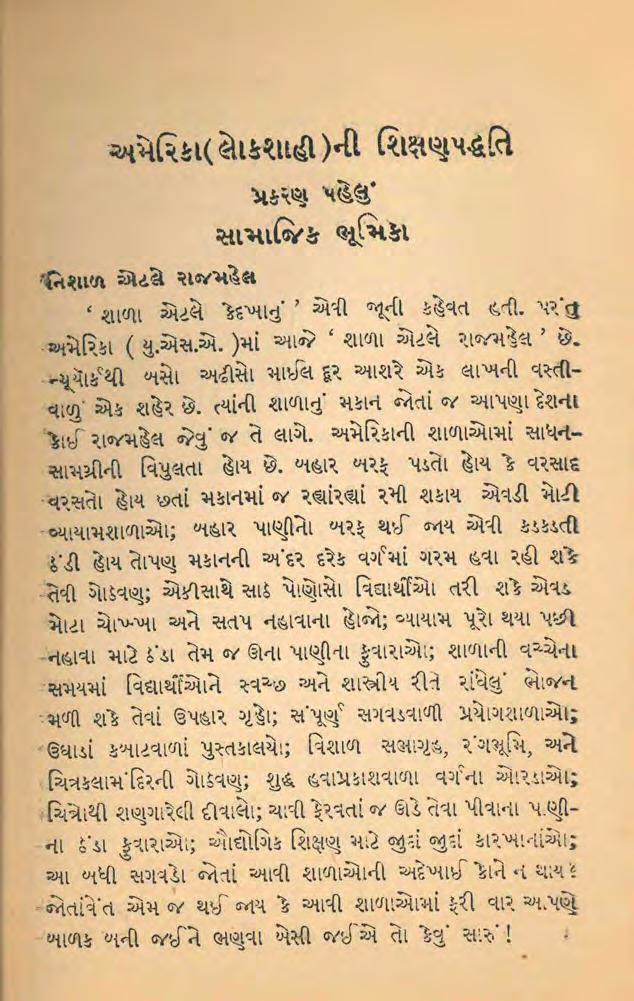 અમેરિકા(લોકશાહી)ની શિક્ષણપદ્ધતિ
પ્રકરણ પહેલું
સામાજિક ભૂમિકા
નિશાળ એટલે રાજમહેલ
‘ શાળા એટલે કેદખાનું ’ એવી જૂની કહેવત હતી. પરંતુ
અમેરિકા ( યુ.એસ.એ. )માં આજે ‘ શાળા એટલે રાજમહેલ ’ છે.
ન્યૂયૉર્કથી બસો અઢીસો માઈલ દૂર આશરે એક લાખની વસ્તી-
વાળું એક શહેર છે. ત્યાંની શાળાનું મકાન જોતાં જ આપણા દેશના
કોઈ રાજમહેલ જેવું જ તે લાગે. અમેરિકાની શાળાઓમાં સાધન-
સામગ્રીની વિપુલતા હોય છે. બહાર બરફ પડતો હોય કે વરસાદ
વરસતો હોય છતાં મકાનમાં જ રહ્યાંરહ્યાં રમી શકાય એવડી મોટી
વ્યાયામશાળાઓ; બહાર પાણીનો બરફ થઈ જાય એવી કડકડતી
ઠંડી હોય તોપણ મકાનની અંદર દરેક વર્ગમાં ગરમ હવા રહી શકે
તેવી ગોઠવણ; એકીસાથે સાઠ પોણોસો વિદ્યાર્થીઓ તરી શકે એવડ
મોટા ચોખ્ખા અને સતપ નહાવાના હોજો; વ્યાયામ પૂરો થયા પછી
નહાવા માટે ઠંડા તેમ જ ઊના પાણીના ફુવારાઓ; શાળાની વચ્ચેના
સમયમાં વિદ્યાર્થીઓને સ્વચ્છ અને શાસ્ત્રીય રીતે રાંધેલું ભોજન
મળી શકે તેવાં ઉપહાર ગૃહો; સંપૂર્ણ સગવડવાળી પ્રયોગશાળાઓ;
ઉઘાડાં કબાટવાળાં પુસ્તકાલયો; વિશાળ સભાગૃહ, રંગભૂમિ, અને
ચિત્રકલામંદિરની ગોઠવણ; શુદ્ધ હવાપ્રકાશવાળા વર્ગના ઓરડાઓ;
ચિત્રોથી શણગારેલી દીવાલો; ચાવી ફેરવતાં જ ઊડે તેવા પીવાના પાણી-
ના ઠંડા ફુવારાઓ; ઔદ્યોગિક શિક્ષણ માટે જુદાં જુદાં કારખાનાંઓ;
આ બધી સગવડો જોતાં આવી શાળાઓની અદેખાઈ કોને ન થાય?
જોતાંવેંત એમ જ થઈ જાય કે આવી શાળાઓમાં ફરી વાર આપણે
બાળક બની જઈને ભણવા બેસી જઈએ તો કેવું સારું !